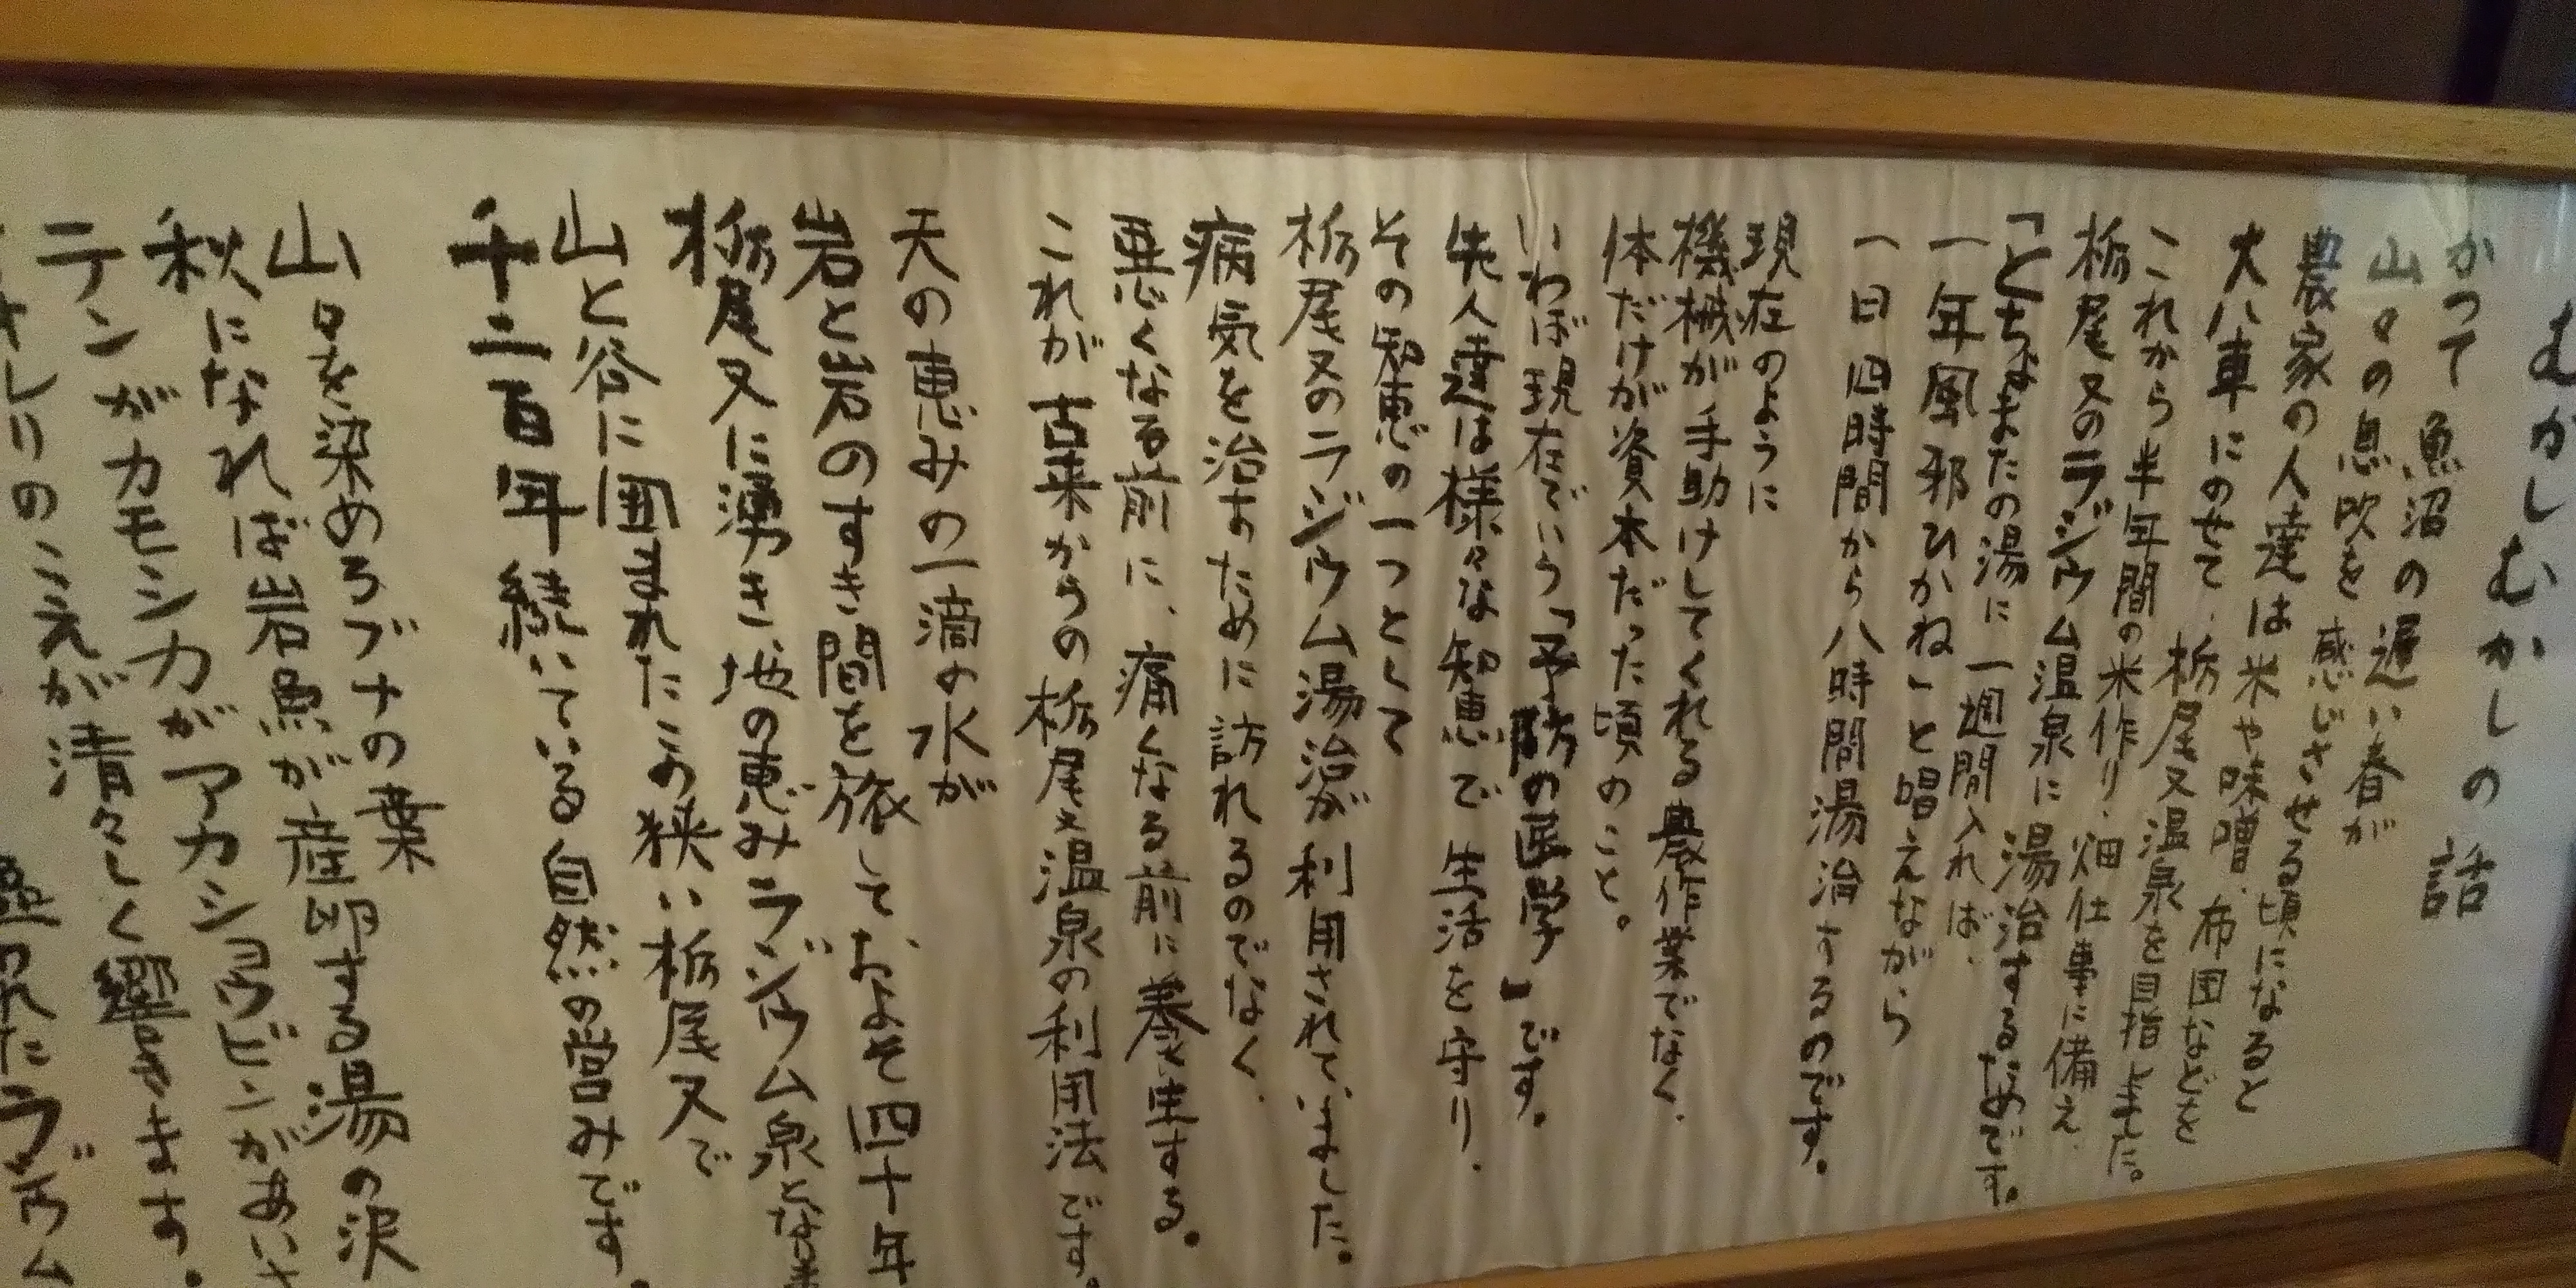 むかしむかしの話
かつて魚沼の遅い春が
山々の息吹を感じさせる頃になると
農家の人達は米や味噌、布団などを
大八車にのせて、栃尾又温泉を目指しました。
これから半年間の米作り、畑仕事に備え、
栃尾又のラジウム温泉に湯治するためです。
「とちおまたの湯に一週間入れば、
一年風邪ひかね」と唱えながら
一日四時間から八時間湯治するのです。
現在のように
機械が手助けしてくれる農作業でなく、
体だけが資本だった頃のこと。
いわば現在でいう「予防の医学」です。
先人達は様々な知恵で生活を守り、
その知恵の一つとして
栃尾又のラジウム湯治が利用されていました。
病気を治すために訪れるのでなく、
悪くなる前に、痛くなる前に養生する。
これが古来からの栃尾又温泉の利用法です。
天の恵みの一滴の水が
岩と岩のすき間を旅して、およそ四十年
栃尾又に湧き、地の恵みラジウム泉となりま
山と谷に囲まれたこの狭い栃尾又で
千二百年続いている自然の営みです。
山々を染めるブナの葉
秋になれば岩魚が産卵する湯の沢
テンがカモシカがアカショウビンがあいさ
のこえが清々しく響きます。
れたラヂウム